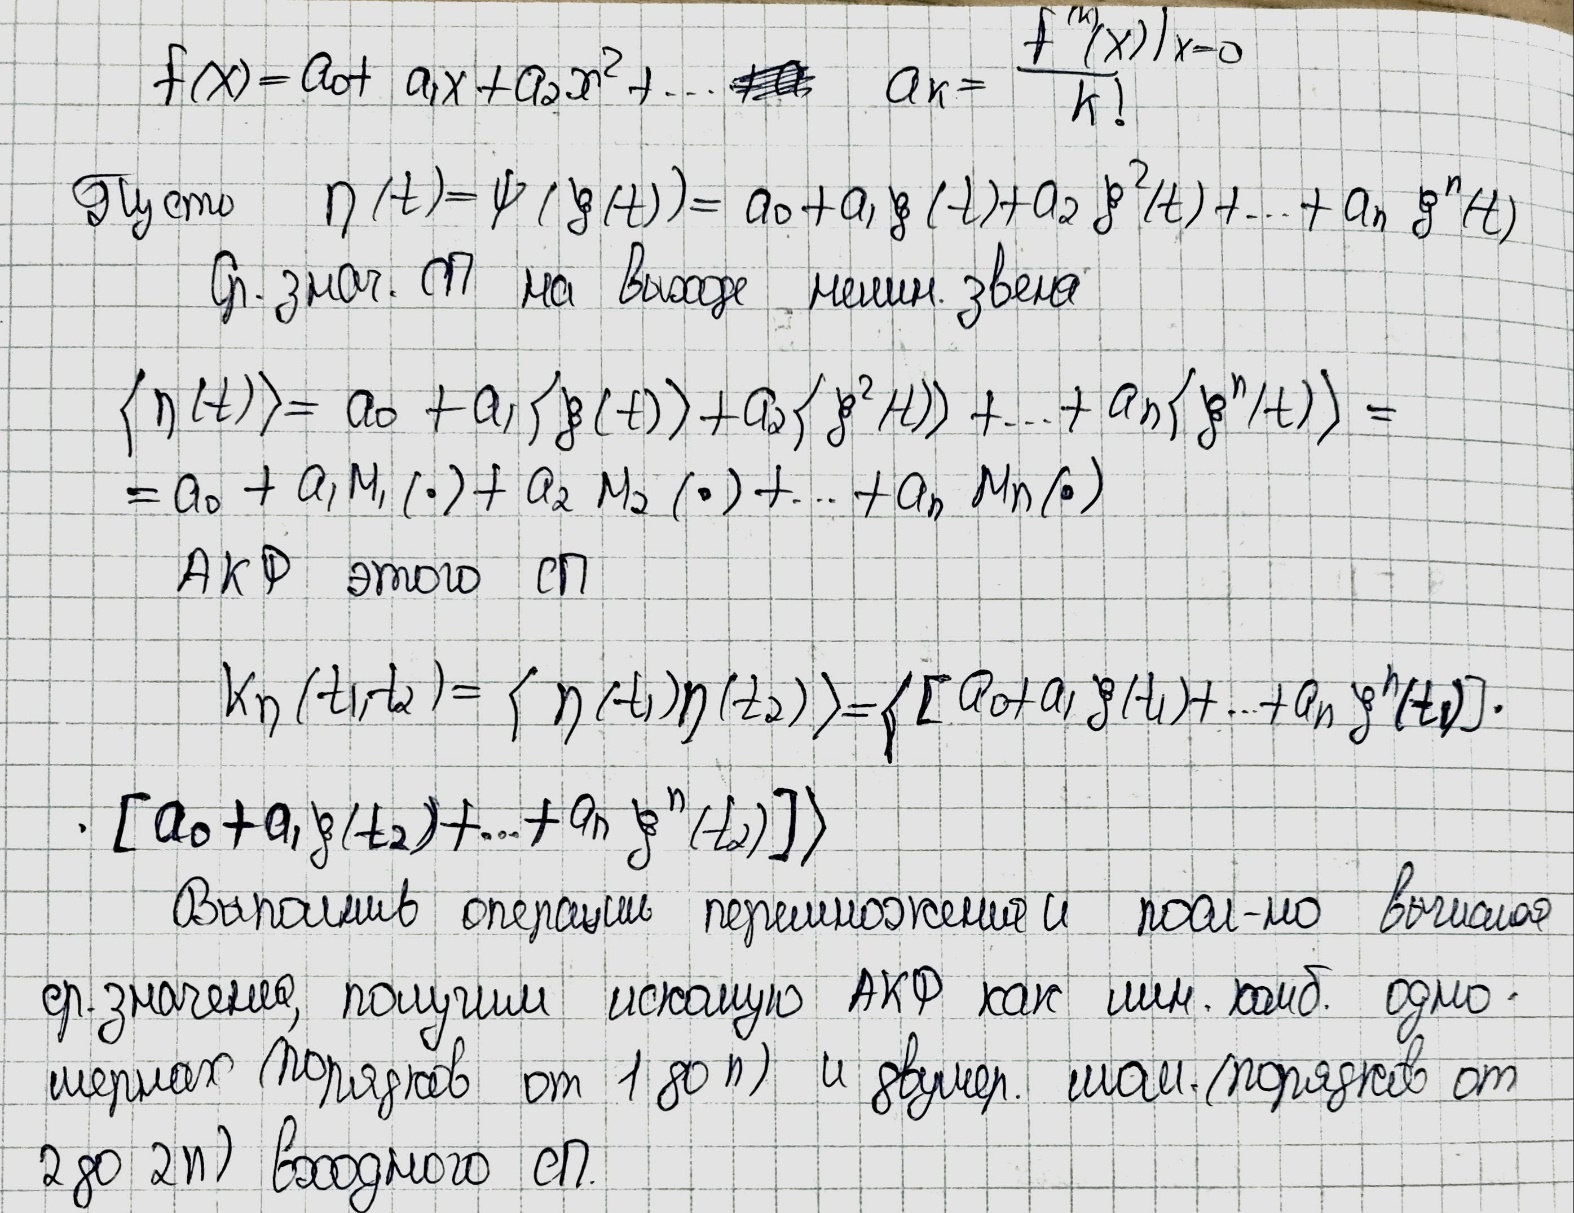 f(x) = a₀ + a₁x + a₂x² + ... aₖ = f⁽ᵏ⁾(x)|ₓ₌₀ / k!
Пусть η(t) = ψ(ξ(t)) = a₀ + a₁ξ(t) + a₂ξ²(t) + ... + aₙξⁿ(t)
Ср. знач. СП на выходе нелин. звена
⟨η(t)⟩ = a₀ + a₁⟨ξ(t)⟩ + a₂⟨ξ²(t)⟩ + ... + aₙ⟨ξⁿ(t)⟩ =
= a₀ + a₁M₁(·) + a₂M₂(·) + ... + aₙMₙ(·)
АКФ этого СП
Kη(t₁,t₂) = ⟨η(t₁)η(t₂)⟩ = ⟨[a₀ + a₁ξ(t₁) + ... + aₙξⁿ(t₁)] ·
· [a₀ + a₁ξ(t₂) + ... + aₙξⁿ(t₂)]⟩
Выполнив операции перемножения и посл-но вычисляя
ср. значения, получим искомую АКФ как лин. комб. одно-
мерных (порядков от 1 до n) и двумер. мом. (порядков от
2 до 2n) входного СП.